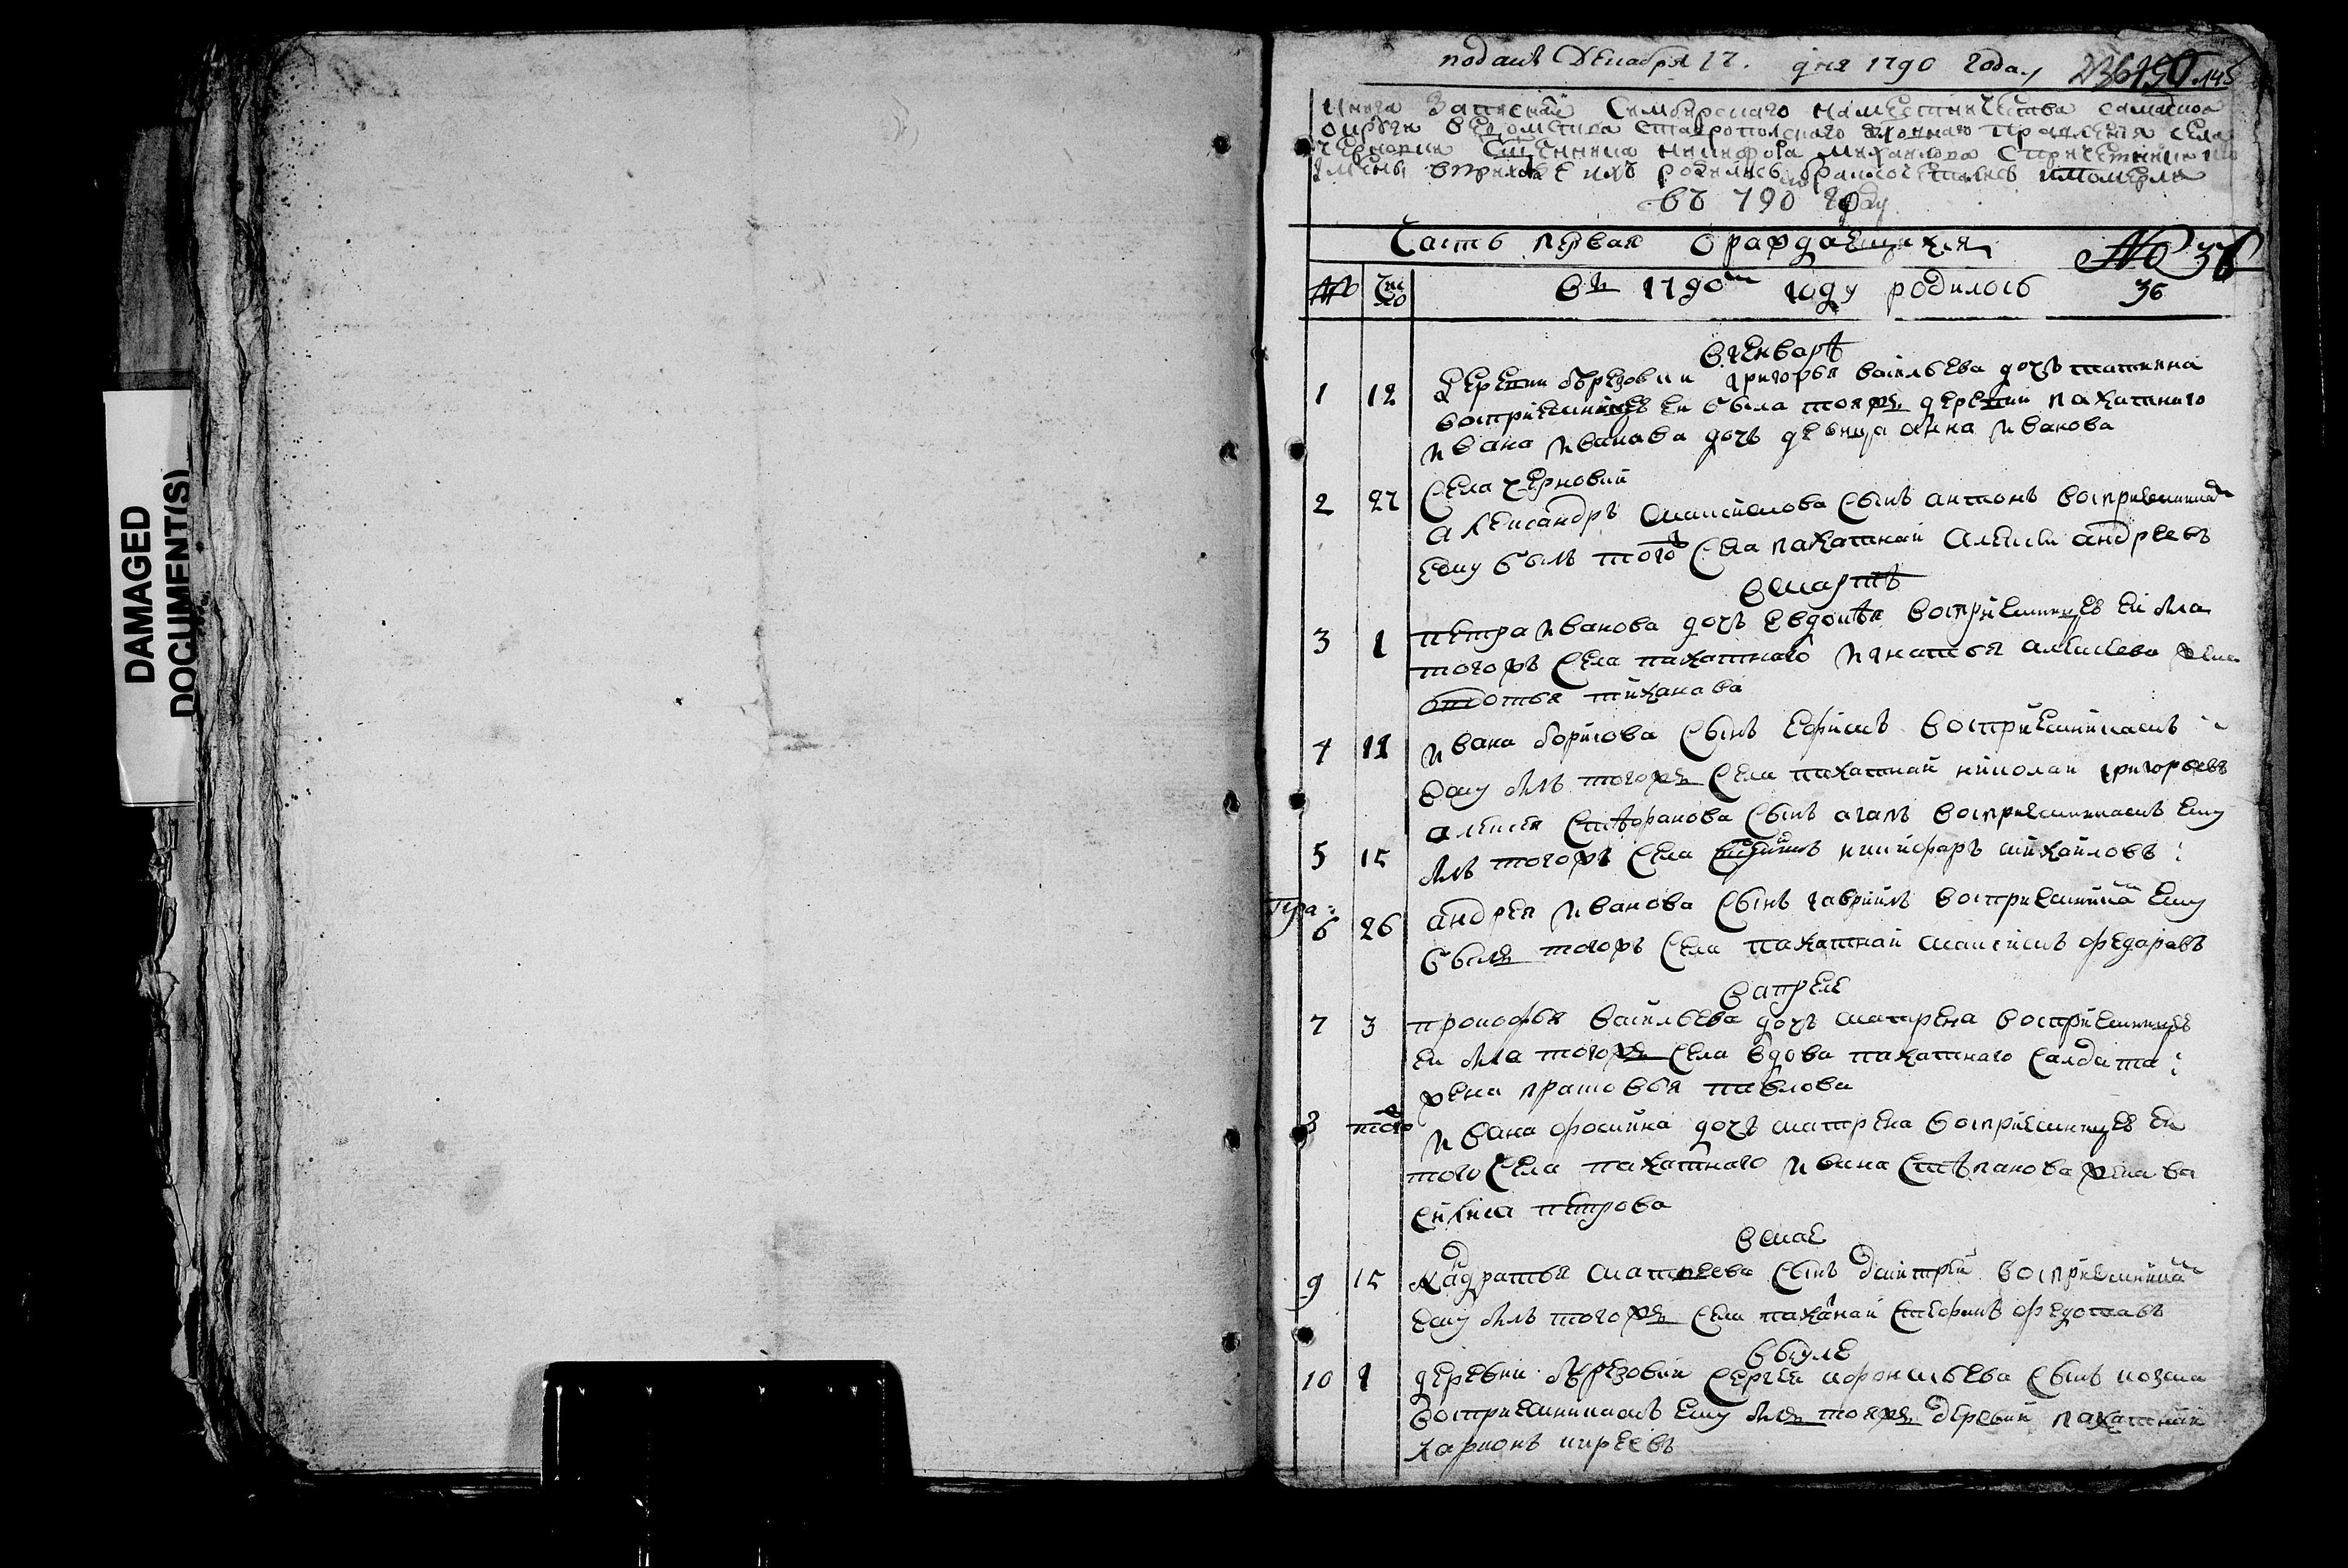 DAMAGED
DOCUMENT(S)
поданъ Декабря 17. дня 1790 году 145
книга записная Симбирскаго намѣстничества самарской
округи ведомства ставропольскаго духовнаго правления села
черновки Сщенника никифора михаилова с причетники кто
имяны в приходе ихъ родились браком сочетались и померли
въ 790 году
Часть первая О раждаещихся № 36
№ Чис ло въ 1790м году родилось 36
в генварѣ
1 12 деревни бѣрезовки григорья васильева дочь татияна
восприемницей еи была тояже деревни пахатного
ивана иванова дочь девица анна иванова
Села черновки
2 27 александръ максимова сынъ антонъ восприемником
ему былъ того Села пахатнои алексеи андреевъ
в мартѣ
3 1 петра иванова дочь евдокѣя восприемницей еи была
тогожъ Села пахатнаго игнатья алексеева жена
тиханова
4 11 ивана борисова Сынъ ефимъ восприемникамъ
ему былъ тогоже Села пахатнаи николаи григорьевъ
алексея Стѣфанова Сынъ агапъ восприемникамъ ему
5 15 былъ тогожъ Села никифаръ михаиловъ
6 26 андрея иванова Сынъ гавриилъ восприемникам ему
былъ тогожъ Села пахатнаи максимъ федаравъ
в апреле
7 3 прокофья васильева дочь матрена восприемницей
еи была тогоже Села вдова пахатнаго Салдата
жена прасковья павлова
8 того ивана фомина дочь матрена восприемницей еи
того Села пахатнаго ивана Стѣпанова жена ва
силиса петрова
в мае
9 15 кадратья матвеева Сынъ дмитреи восприемникам
ему былъ тогоже Села пахатнаи Стефанъ федотавъ
в июле
10 1 деревни бѣрезовки Сергея афонасьева Сынъ козма
восприемникамъ ему былъ тояже деревни пахатнаи
карионъ киреевъ